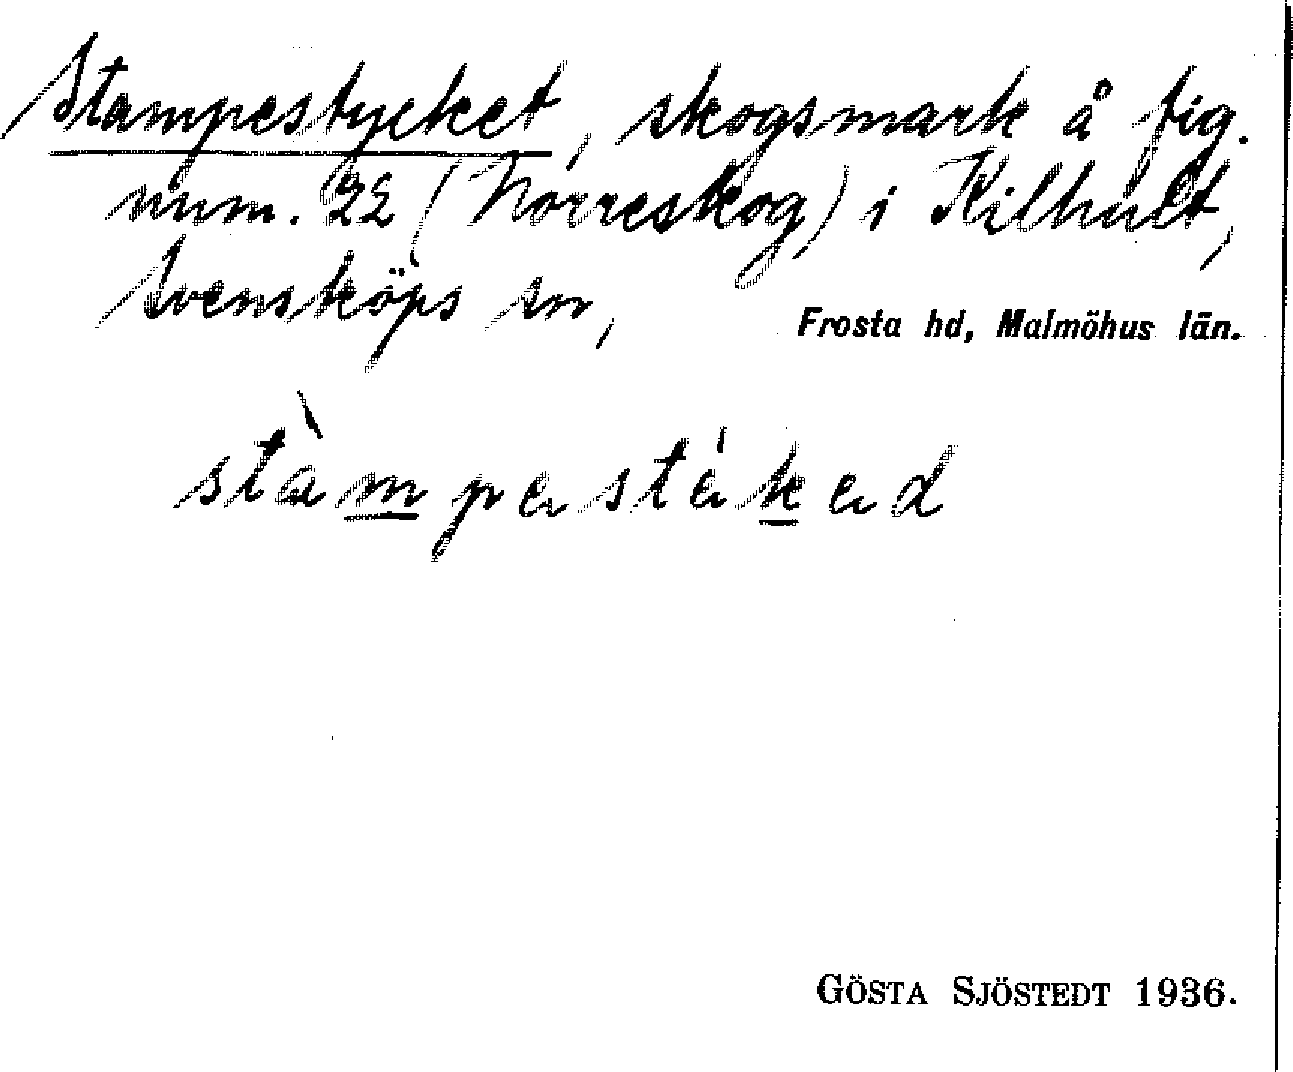 Stampestycket, skogsmark å fig.
num. 22 (Norreskog) i Kilhult,
Svensköps sn,
Frosta hd, Malmöhus län.
GÖSTA SJÖSTEDT 1936.